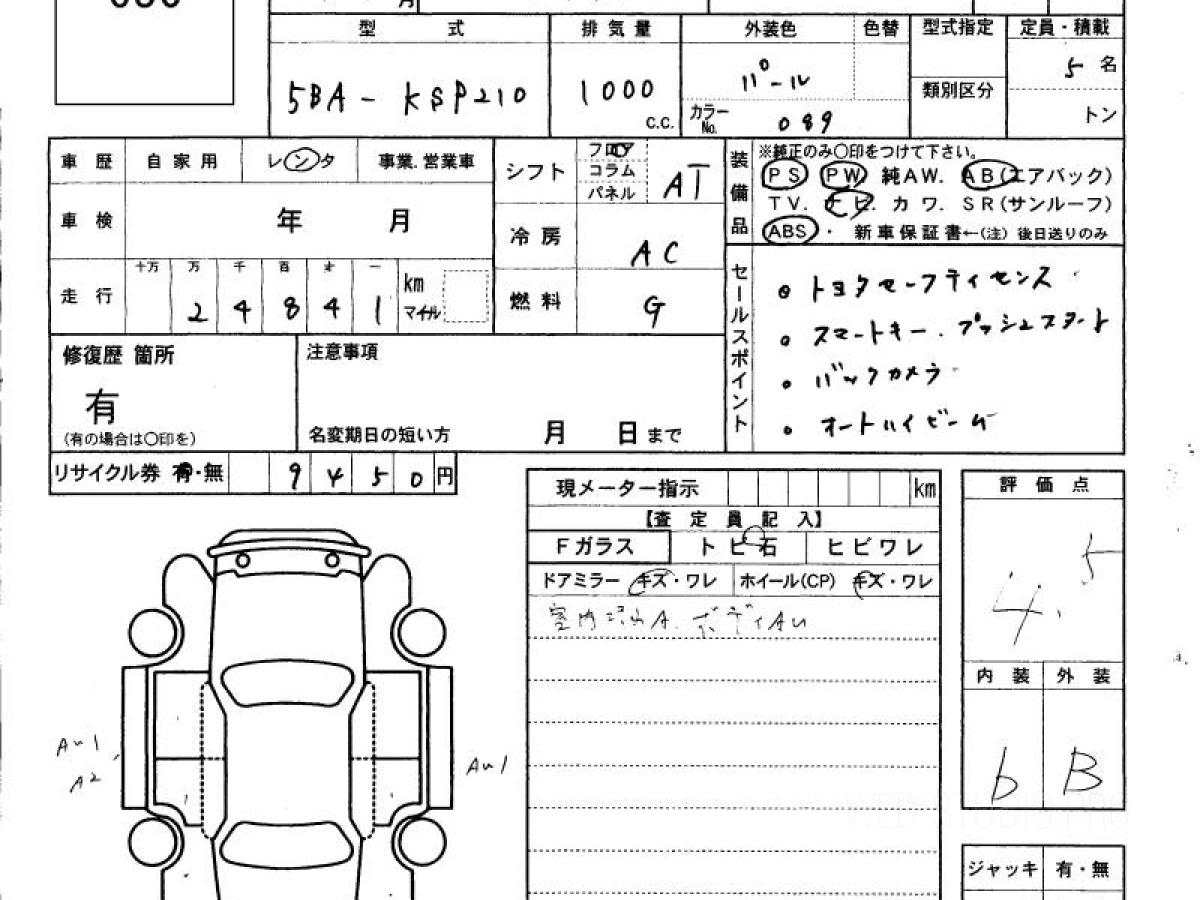 型 式 排気量 外装色 色替 型式指定 定員・積載
5BA - KSP210 1000 c.c. パール 5 名
類別区分
カラーNo. 089 トン
車歴 自家用 レンタ 事業.営業車 シフト フロア コラム パネル AT
装備品 ※純正のみ〇印をつけて下さい。
PS PW 純AW. AB(エアバック)
TV. ナビ. カワ. SR(サンルーフ)
ABS ・ 新車保証書←(注) 後日送りのみ
車検 年 月 冷房 AC
走行 十万 万 千 百 十 一
2 4 8 4 1 km マイル
燃料 G
セールスポイント
トヨタセーフティセンス
スマートキー.プッシュスタート
バックカメラ
オートハイビーム
修復歴 箇所
有
(有の場合は〇印を)
注意事項
名変期日の短い方 月 日まで
リサイクル券 有・無 9450円
現メーター指示 km
【査定員記入】
Fガラス トビ石 ヒビワレ
ドアミラー キズ・ワレ ホイール(CP) キズ・ワレ
ボディAU
評価点
4.5
内装 外装
b B
AU1
A2
AU1
ジャッキ 有・無